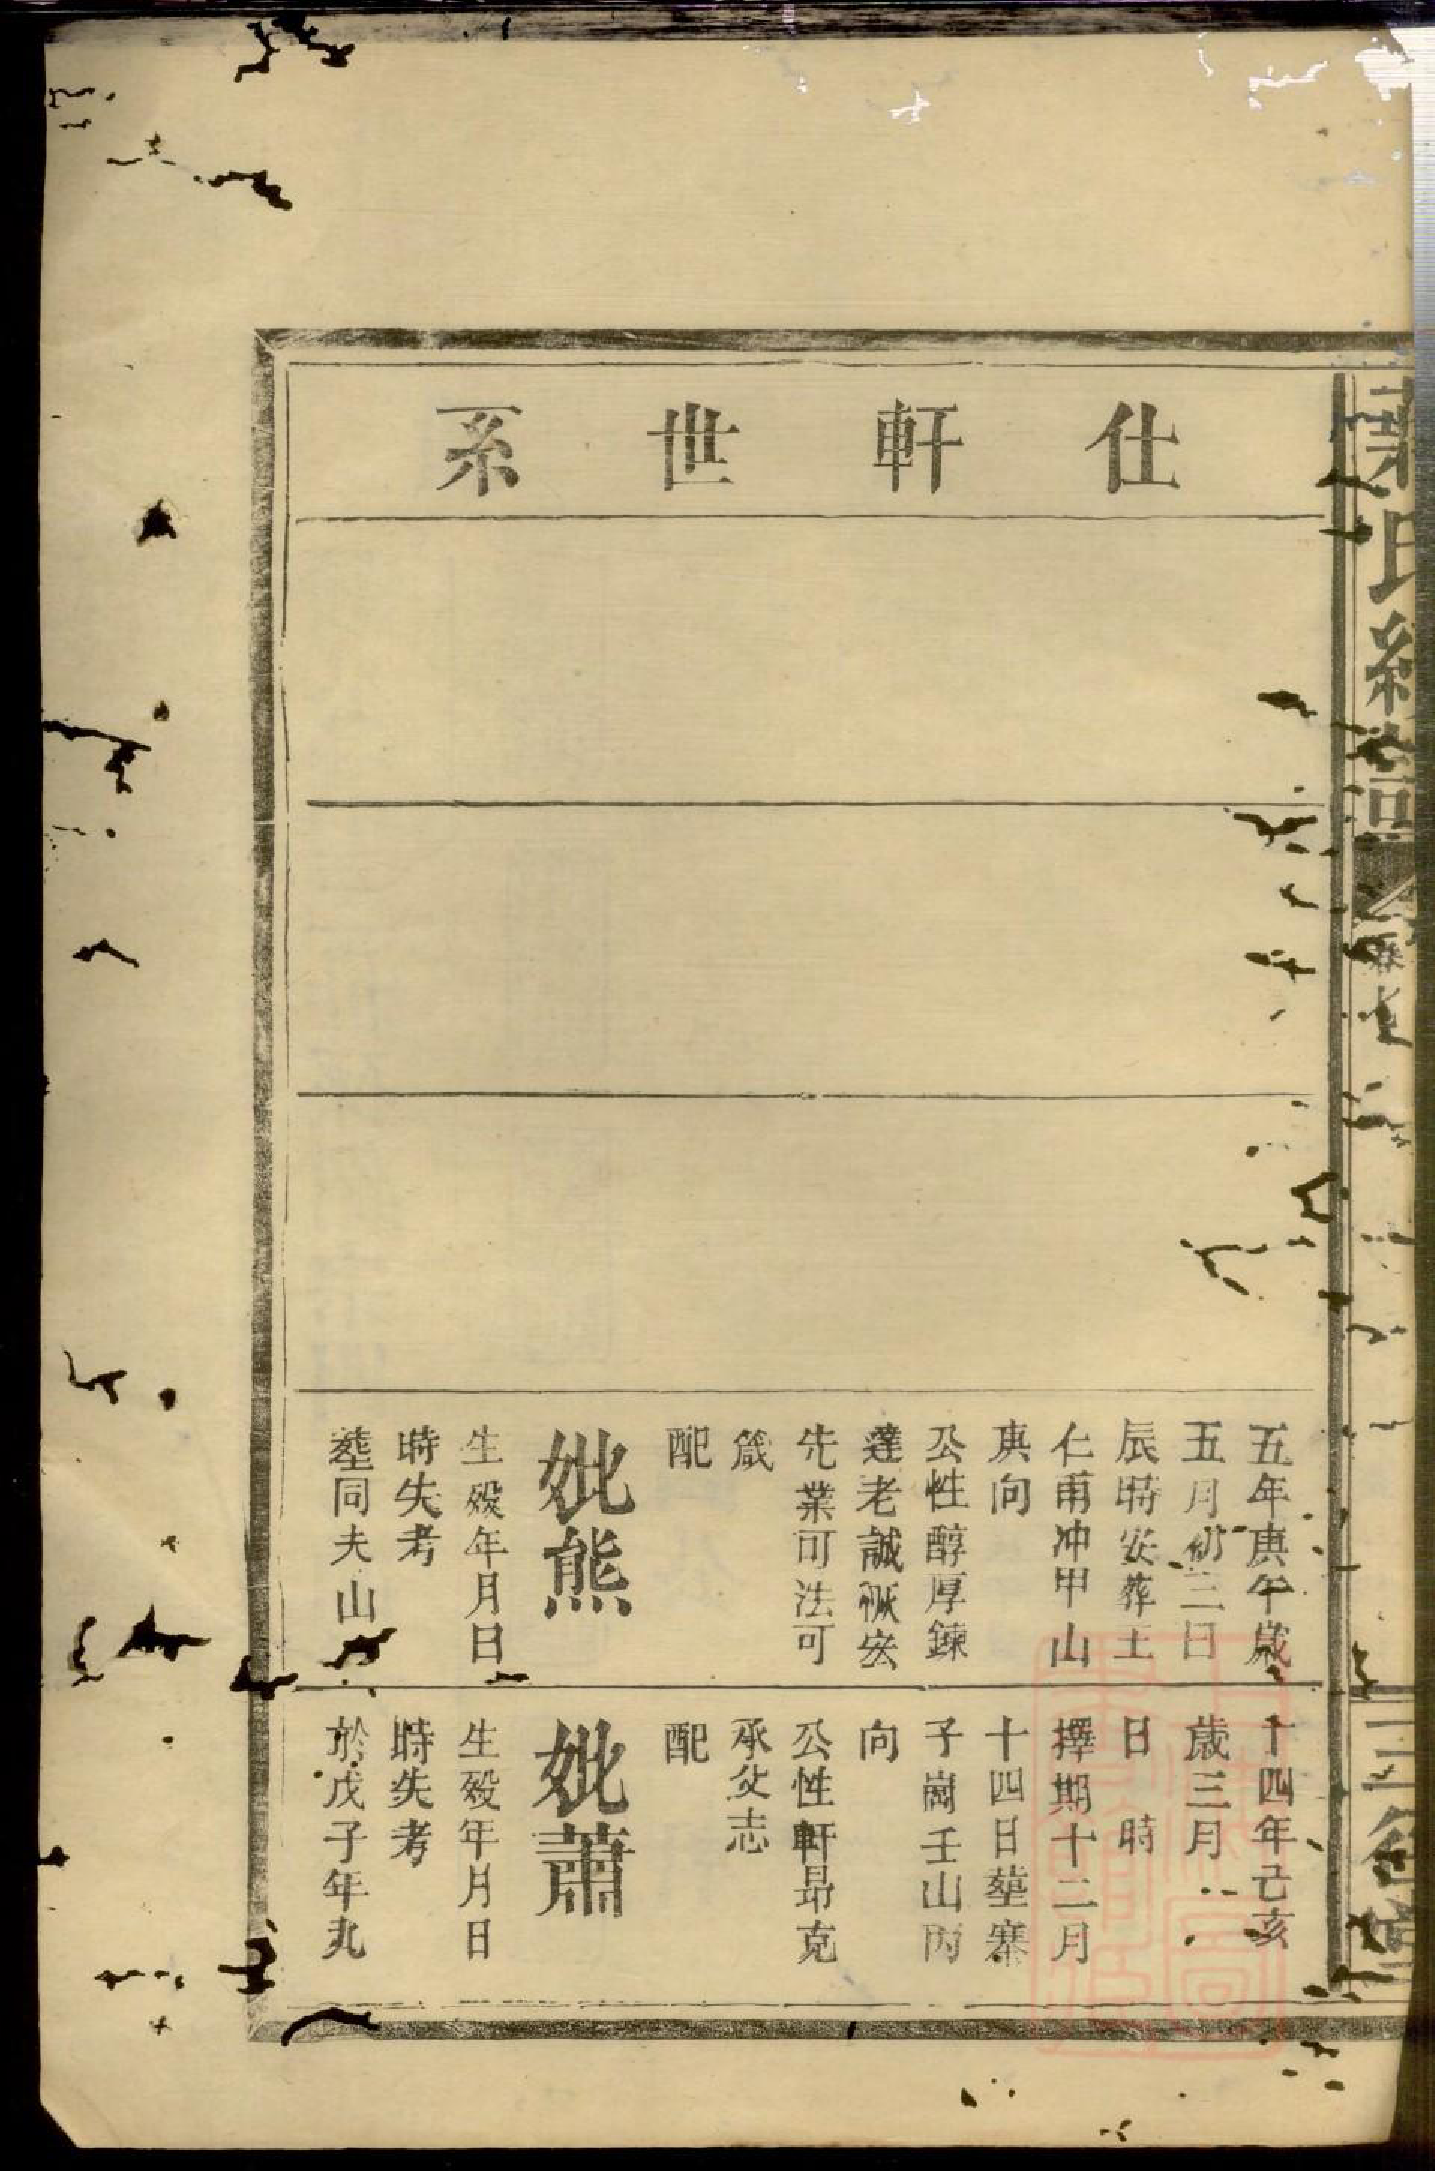 仕軒世系
五年庚午歲
五月初三日
辰時安葬王
仁甫冲甲山
庚向
公性醇厚鍊
達老誠恢宏
先業可法可
箴
配
妣熊
生殁年月日
時失考
塟同夫山
十四年己亥
歲三月
日時
擇期十二月
十四日塟寨
子崗壬山丙
向
公性軒昂克
承父志
配
妣蕭
生殁年月日
時失考
於戊子年丸
氏
卷七
三